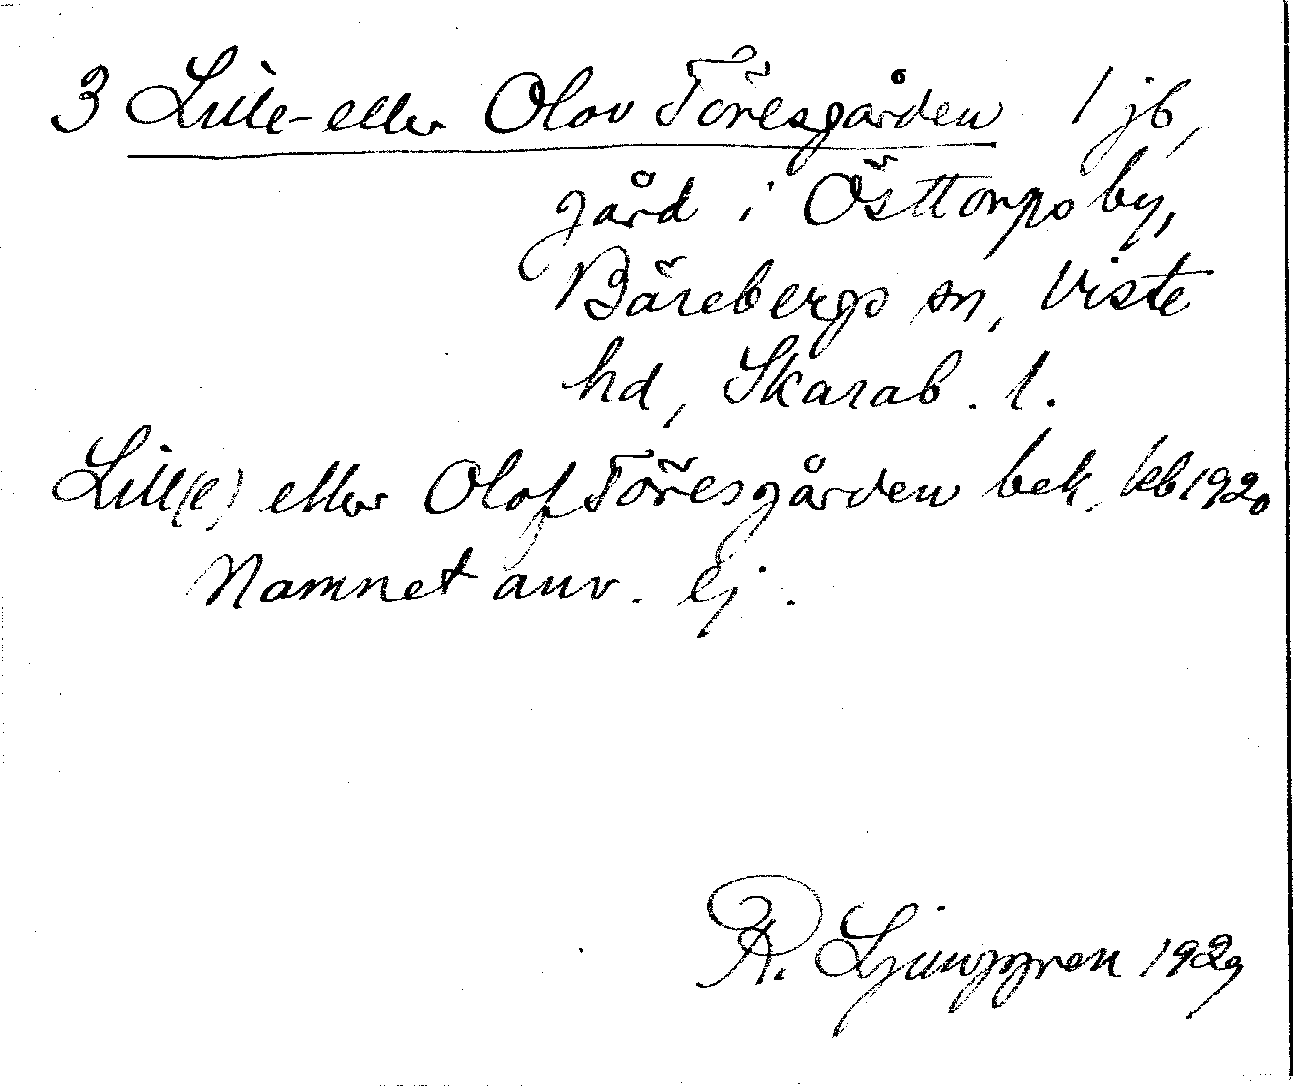 3 Lille- eller Olov Töresgården 1 jb,
gård i Östtorps by,
Bärebergs sn, Viste
hd, Skarab. l.
Lill(e) eller Olof Töresgården bek, kb 1920
Namnet anv. ej.
R. Ljunggren 1929